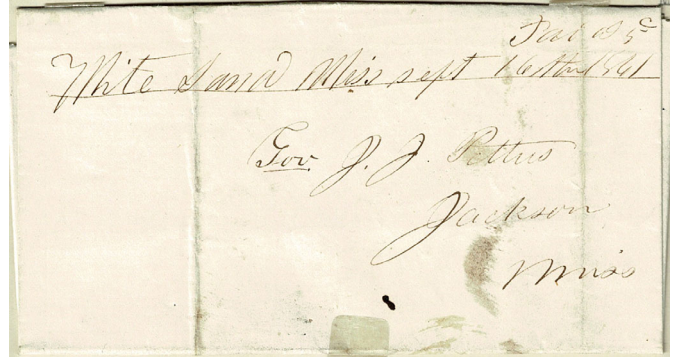 Paid 5c
White Sand Miss sept 16th 1861
Gov J. J. Pettus
Jackson
Miss